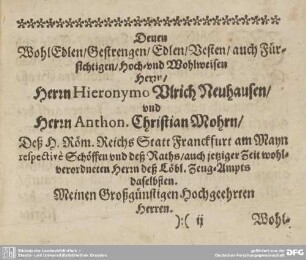 Denen
WohlEdlen/Gestrengen/Edlen/Vesten/auch Für-
sichtigen/Hoch-vnd Wohlweisen
Herrn/
Herrn Hieronymo Vlrich Neuhausen/
vnd
Herrn Anthon. Christian Mohrn/
Deß H. Röm. Reichs Statt Franckfurt am Mayn
respectivè Schöffen vnd deß Raths/auch jetziger Zeit wohl-
verordneten Herrn deß Löbl. Zeug-Ampts
daselbsten.
Meinen Großgünstigen Hochgeehrten
Herren.
):( ij Wohl-